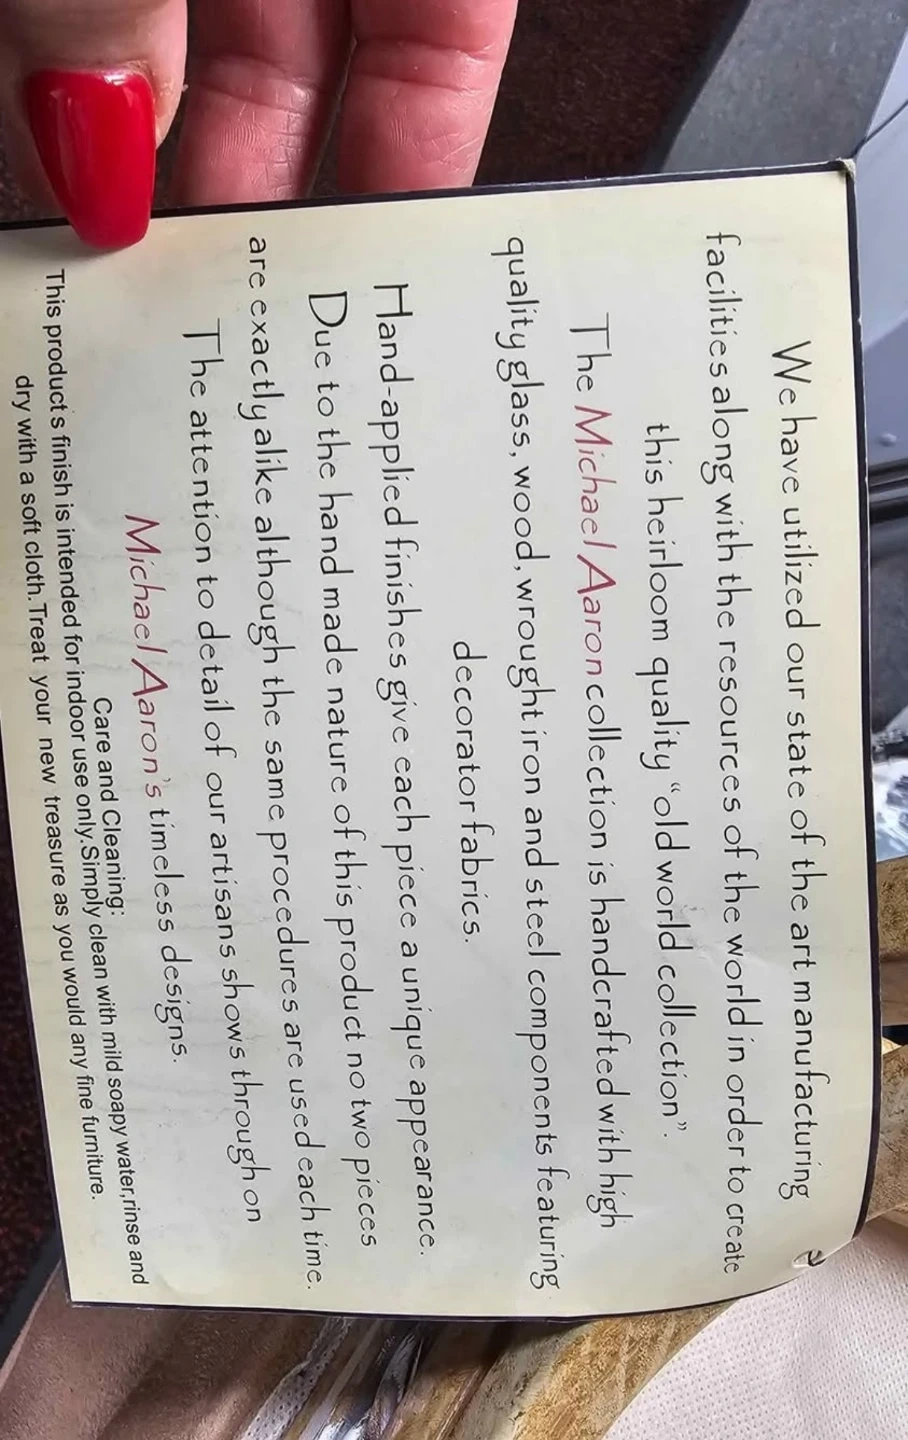 We have utilized our state of the art manufacturing
facilities along with the resources of the world in order to create
this heirloom quality "old world collection".
The Michael Aaron collection is handcrafted with high
quality glass, wood, wrought iron and steel components featuring
decorator fabrics.
Hand-applied finishes give each piece a unique appearance.
Due to the hand made nature of this product no two pieces
are exactly alike although the same procedures are used each time.
The attention to detail of our artisans shows through on
Michael Aaron's timeless designs.
Care and Cleaning:
This product's finish is intended for indoor use only.Simply clean with mild soapy water,rinse and
dry with a soft cloth.Treat your new treasure as you would any fine furniture.